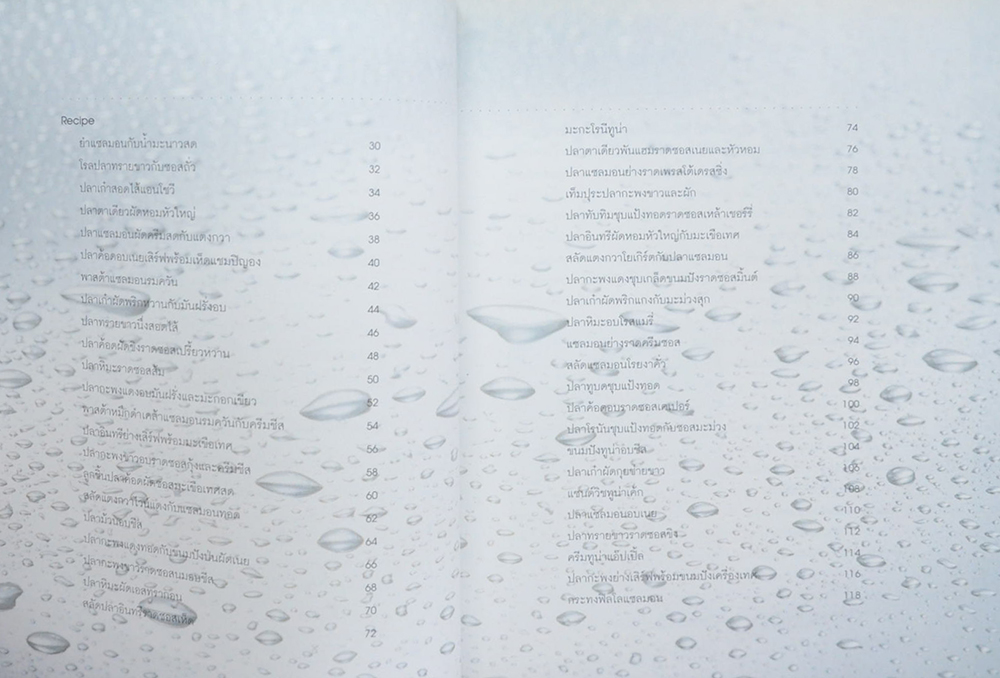 Recipe
ยำแซลมอนกับน้ำมะนาวสด 30
โรลปลาทรายขาวกับซอสถั่ว 32
ปลาเก๋าสอดไส้แอนโชวี 34
ปลาตาเดียวผัดหอมหัวใหญ่ 36
ปลาแซลมอนผัดครีมสดกับแตงกวา 38
ปลาค้อดอบเนยเสิร์ฟพร้อมเห็ดแชมปิญอง 40
พาสต้าแซลมอนรมควัน 42
ปลาเก๋าผัดพริกหวานกับมันฝรั่งอบ 44
ปลาทรายขาวนึ่งสอดไส้ 46
ปลาค้อดผัดขิงราดซอสเปรี้ยวหวาน 48
ปลาหิมะราดซอสส้ม 50
ปลากะพงแดงอบมันฝรั่งและมะกอกเขียว 52
พาสต้าหมึกดำเคล้าแซลมอนรมควันกับครีมชีส 54
ปลาอินทรีย่างเสิร์ฟพร้อมมะเขือเทศ 56
ปลากะพงขาวอบราดซอสกุ้งและครีมชีส 58
ลูกชิ้นปลาค้อดผัดซอสมะเขือเทศสด 60
สลัดแตงกวาไวน์แดงกับแซลมอนทอด 62
ปลาม้วนอบชีส 64
ปลากะพงแดงทอดกับขนมปังผัดเนย 66
ปลากะพงขาวราดซอสนมอบชีส 68
ปลาหิมะผัดเอสทราก้อน 70
สลัดปลาอินทรีราดซอสเห็ด 72
มะกะโรนีทูน่า 74
ปลาตาเดียวพันแฮมราดซอสเนยและหัวหอม 76
ปลาแซลมอนย่างราดเพรสโต้เดรสซิ่ง 78
เท็มปุระปลากะพงขาวและผัก 80
ปลาทับทิมชุบแป้งทอดราดซอสเหล้าเชอร์รี่ 82
ปลาอินทรีผัดหอมหัวใหญ่กับมะเขือเทศ 84
สลัดแตงกวาโยเกิร์ตกับปลาแซลมอน 86
ปลากะพงแดงชุบเกล็ดขนมปังราดซอสมิ้นต์ 88
ปลาเก๋าผัดพริกแกงกับมะม่วงสุก 90
ปลาหิมะอบโรสแมรี่ 92
แซลมอนย่างราดครีมซอส 94
สลัดแซลมอนโรยงาคั่ว 96
ปลาทูบดชุบแป้งทอด 98
ปลาค้อดอบราดซอสเคเปอร์ 100
ปลาโรนันชุบแป้งทอดกับซอสมะม่วง 102
ขนมปังทูน่าอบชีส 104
ปลาเก๋าผัดกุยช่ายขาว 106
แซนด์วิชทูน่าเค้ก 108
ปลาแซลมอนอบเนย 110
ปลาทรายขาวราดซอสขิง 112
ครีมทูน่าแอ๊ปเปิ้ล 114
ปลากะพงย่างเสิร์ฟพร้อมขนมปังเครื่องเทศ 116
กระทงฟิลโลแซลมอน 118